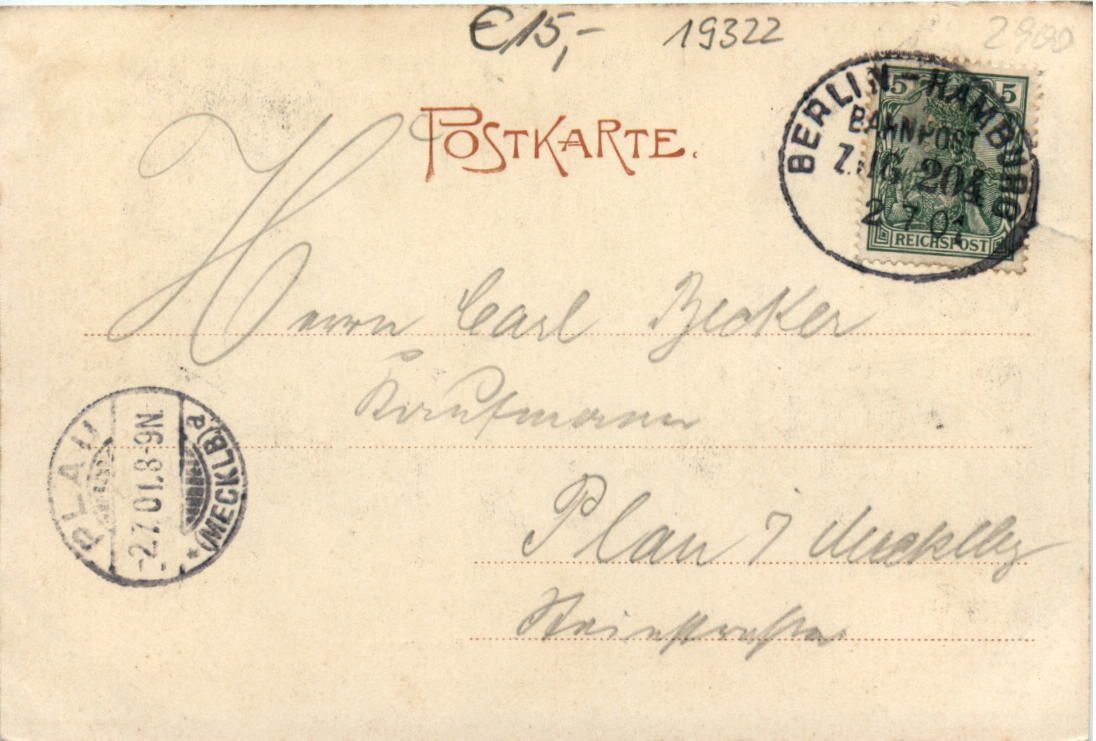 €15,- 19322 2900
POSTKARTE.
5 5
REICHSPOST
BERLIN-HAMBURG
BAHNPOST
ZUG 204
2 7 01
Herrn Carl Becker
Kaufmann
PLAU
-2.7.01.8-9N.
*(MECKLB)a
Plau i Mecklbg
Steinstraße